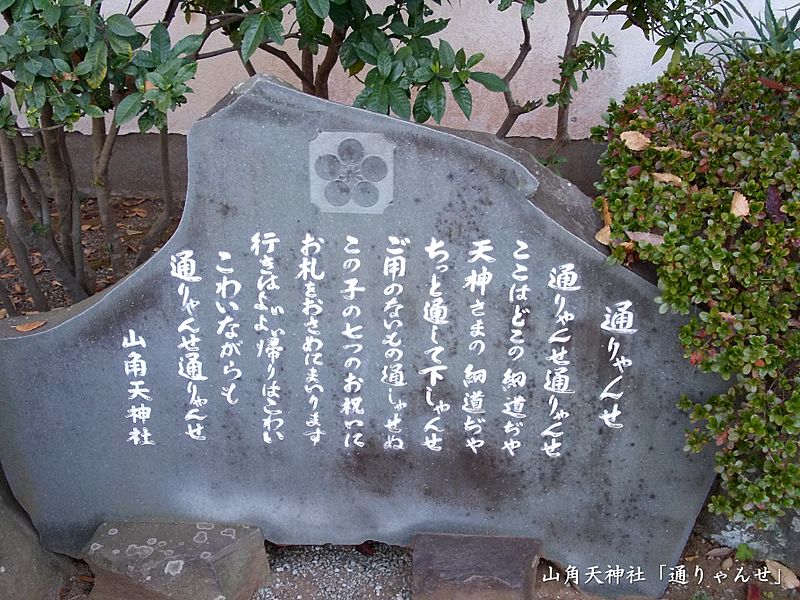 通りゃんせ
通りゃんせ通りゃんせ
ここはどこの細道ぢや
天神さまの細道ぢや
ちっと通して下しゃんせ
ご用のないもの通しゃせぬ
この子の七つのお祝いに
お札をおさめにまいります
行きはよいよい帰りはこわい
こわいながらも
通りゃんせ通りゃんせ
山角天神社
山角天神社「通りゃんせ」